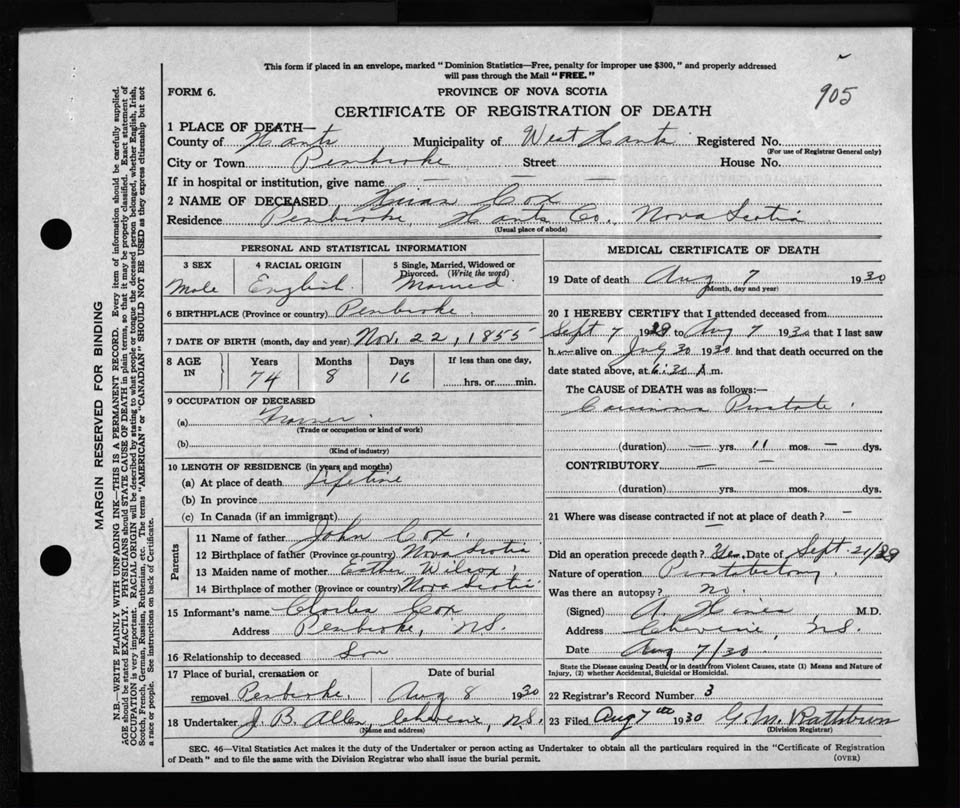 This form if placed in an envelope, marked "Dominion Statistics—Free, penalty for improper use $300," and properly addressed
will pass through the Mail "FREE."
905
FORM 6.
PROVINCE OF NOVA SCOTIA
CERTIFICATE OF REGISTRATION OF DEATH
1 PLACE OF DEATH—
County of Hants Municipality of West Hants Registered No.
(For use of Registrar General only)
City or Town Pembroke Street House No.
If in hospital or institution, give name — —
2 NAME OF DECEASED Cox
Residence Pembroke, Hants Co, Nova Scotia
(Usual place of abode)
PERSONAL AND STATISTICAL INFORMATION
3 SEX Male
4 RACIAL ORIGIN English
5 Single, Married, Widowed or Divorced. (Write the word) Married
6 BIRTHPLACE (Province or country) Pembroke
7 DATE OF BIRTH (month, day and year) Nov. 22, 1855
8 AGE IN Years 74 Months 8 Days 16 If less than one day, hrs. or min.
9 OCCUPATION OF DECEASED
(a) Farmer
(Trade or occupation or kind of work)
(b)
(Kind of industry)
10 LENGTH OF RESIDENCE (in years and months)
(a) At place of death Lifetime
(b) In province
(c) In Canada (if an immigrant)
Parents
11 Name of father John Cox
12 Birthplace of father (Province or country) Nova Scotia
13 Maiden name of mother Esther Wilcox
14 Birthplace of mother (Province or country) Nova Scotia
15 Informant's name Charles Cox
Address Pembroke, N.S.
16 Relationship to deceased Son
17 Place of burial, cremation or removal Pembroke, Date of burial Aug 8 1930
18 Undertaker J. B. Allen, Cheverie, N.S.
(Name and address)
MEDICAL CERTIFICATE OF DEATH
19 Date of death Aug 7 1930
(Month, day and year)
20 I HEREBY CERTIFY that I attended deceased from
Sept 7 1929 to Aug 7 1930 that I last saw
h alive on July 30 1930 and that death occurred on
date stated above, at 6:30 A m.
The CAUSE of DEATH was as follows:—
Carcinoma Prostate
(duration) — yrs. 11 mos. — dys.
CONTRIBUTORY — —
(duration) yrs. mos. dys.
21 Where was disease contracted if not at place of death? —
—
Did an operation precede death? Yes, Date of Sept. 21/29
Nature of operation Prostatectomy
Was there an autopsy? no.
(Signed) A. Hines M.D.
Address Cheverie, N.S.
Date Aug 7/30
State the Disease causing Death, or in death from Violent Causes, state (1) Means and Nature of
Injury, (2) whether Accidental, Suicidal or Homicidal.
22 Registrar's Record Number 3
23 Filed Aug 7th 1930 G. M. Rathburn
(Division Registrar)
SEC. 46—Vital Statistics Act makes it the duty of the Undertaker or person acting as Undertaker to obtain all the particulars required in the "Certificate of Registration
of Death" and to file the same with the Division Registrar who shall issue the burial permit.
(OVER)
MARGIN RESERVED FOR BINDING
N.B.—WRITE PLAINLY WITH UNFADING INK—THIS IS A PERMANENT RECORD. Every item of information should be carefully supplied.
AGE should be stated EXACTLY. PHYSICIANS should STATE CAUSE OF DEATH in plain terms, so that it may be properly classified. Exact statement of
OCCUPATION is very important. RACIAL ORIGIN will be described by stating to what people or tongue the deceased person belonged, whether English, Irish,
Scotch, French, German, Russian, Ruthenian, etc. The terms "AMERICAN" or "CANADIAN" SHOULD NOT BE USED as they express citizenship but not
a race or people. See instructions on back of Certificate.